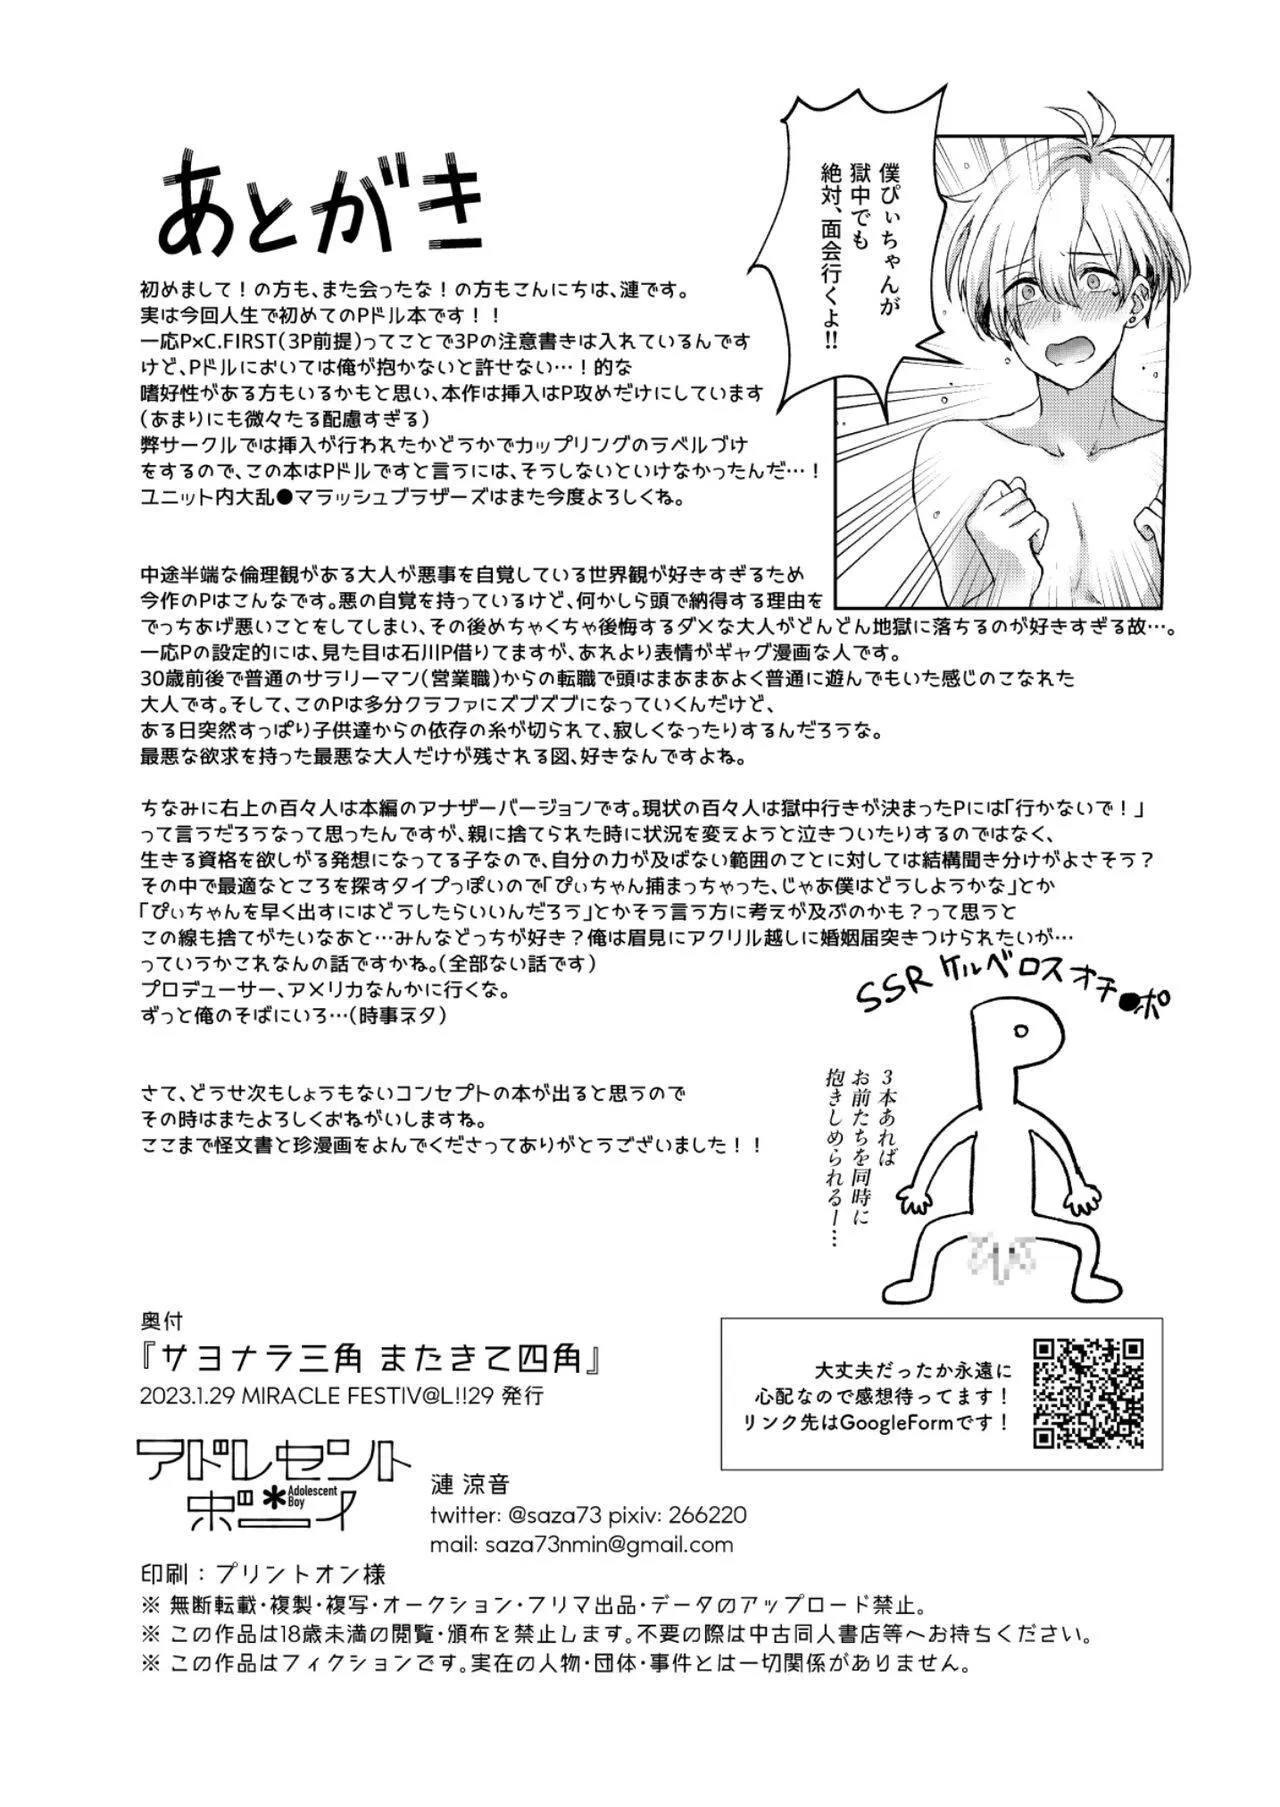 僕ぴぃちゃんが
獄中でも
絶対、面会行くよ!!
あとがき
初めまして！の方も、また会ったな！の方もこんにちは、漣です。
実は今回人生で初めてのPドル本です！！
一応P×C.FIRST(3P前提)ってことで3Pの注意書きは入れているんです
けど、Pドルにおいては俺が抱かないと許せない…！的な
嗜好性がある方もいるかもと思い、本作は挿入はP攻めだけにしています
(あまりにも微々たる配慮すぎる)
弊サークルでは挿入が行われたかどうかでカップリングのラベルづけ
をするので、この本はPドルですと言うには、そうしないといけなかったんだ…！
ユニット内大乱●マラッシュブラザーズはまた今度よろしくね。
中途半端な倫理観がある大人が悪事を自覚している世界観が好きすぎるため
今作のPはこんなです。悪の自覚を持っているけど、何かしら頭で納得する理由を
でっちあげ悪いことをしてしまい、その後めちゃくちゃ後悔するダメな大人がどんどん地獄に落ちるのが好きすぎる故…。
一応Pの設定的には、見た目は石川P借りてますが、あれより表情がギャグ漫画な人です。
30歳前後で普通のサラリーマン(営業職)からの転職で頭はまあまあよく普通に遊んでもいた感じのこなれた
大人です。そして、このPは多分クラファにズブズブになっていくんだけど、
ある日突然すっぱり子供達からの依存の糸が切られて、寂しくなったりするんだろうな。
最悪な欲求を持った最悪な大人だけが残される図、好きなんですよね。
ちなみに右上の百々人は本編のアナザーバージョンです。現状の百々人は獄中行きが決まったPには「行かないで！」
って言うだろうなって思ったんですが、親に捨てられた時に状況を変えようと泣きついたりするのではなく、
生きる資格を欲しがる発想になってる子なので、自分の力が及ばない範囲のことに対しては結構聞き分けがよさそう？
その中で最適なところを探すタイプっぽいので「ぴぃちゃん捕まっちゃった、じゃあ僕はどうしようかな」とか
「ぴぃちゃんを早く出すにはどうしたらいいんだろう」とかそう言う方に考えが及ぶのかも？って思うと
この線も捨てがたいなあと…みんなどっちが好き？俺は眉見にアクリル越しに婚姻届突きつけられたいが…
っていうかこれなんの話ですかね。(全部ない話です)
プロデューサー、アメリカなんかに行くな。
ずっと俺のそばにいろ…(時事ネタ)
SSR ケルベロスオチ●ポ
P
3本あれば
お前たちを同時に
抱きしめられるー…
さて、どうせ次もしょうもないコンセプトの本が出ると思うので
その時はまたよろしくおねがいしますね。
ここまで怪文書と珍漫画をよんでくださってありがとうございました！！
奥付
『サヨナラ三角 またきて四角』
2023.1.29 MIRACLE FESTIV@L!!29 発行
大丈夫だったか永遠に
心配なので感想待ってます！
リンク先はGoogleFormです！
アドレセント
ボーイ
Adolescent
Boy
漣 涼音
twitter: @saza73 pixiv: 266220
mail: saza73nmin@gmail.com
印刷：プリントオン様
※ 無断転載・複製・複写・オークション・フリマ出品・データのアップロード禁止。
※ この作品は18歳未満の閲覧・頒布を禁止します。不要の際は中古同人書店等へお持ちください。
※ この作品はフィクションです。実在の人物・団体・事件とは一切関係がありません。